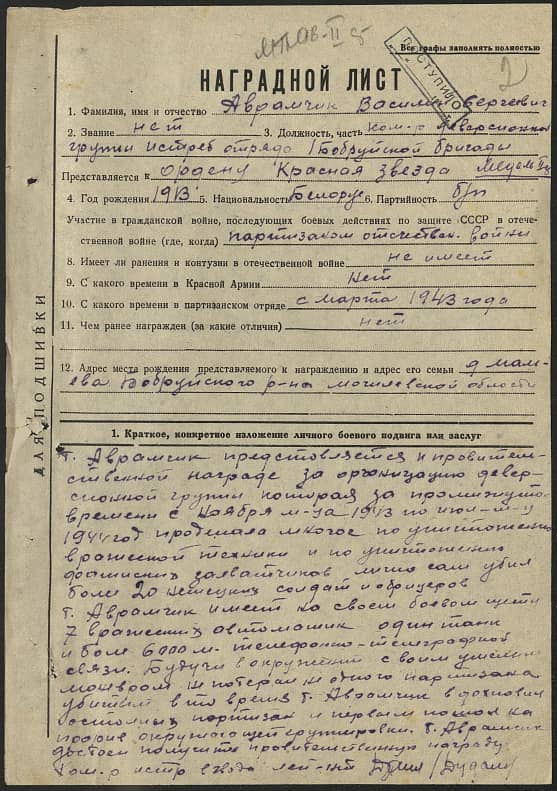 Все графы заполнять полностью
ПОСТУПИЛО
2
НАГРАДНОЙ ЛИСТ
1. Фамилия, имя и отчество Аврамчик Василий Сергеевич
2. Звание нет 3. Должность, часть ком-р диверсионной
группы истреб отряда 1 Бобруйской бригады
Представляется к ордену "Красная звезда"
4. Год рождения 1913 5. Национальность Белорус 6. Партийность б/п
Участие в гражданской войне, последующих боевых действиях по защите СССР в отече-
ственной войне (где, когда) партизаном отечествен. войны
8. Имеет ли ранения и контузии в отечественной войне не имеет
9. С какого времени в Красной Армии нет
10. С какого времени в партизанском отряде с марта 1943 года
11. Чем ранее награжден (за какие отличия) нет
12. Адрес места рождения представляемого к награждению и адрес его семьи
Бобруйского р-на могилевской области
ДЛЯ ПОДШИВКИ
1. Краткое, конкретное изложение личного боевого подвига или заслуг
т. Аврамчик представляется к правитель-
ственной награде за организацию дивер-
сионной группы которая за промижуток
времени с ноября м-ца 1943 по июл-м-ц
1944 год проделала многое по уничтожению
вражеской техники и по уничтожению
фашиских захватчиков лично сам убил
боли 20 немецких солдат и офицеров
т. Аврамчик имеет на своем боевом щету
7 вражеских автомашин один танк
и боле 6000 м. телефонно-телеграфной
связи. Будучи в окружении с своим умелым
моневром не потерял не одного партизана
убитым в то время т. Аврамчик
партизан и первым пошол на
прорыв окружающей групировки. т. Аврамчик
достоен получить правительственную награду
Ком-р истр взвода лей-нт